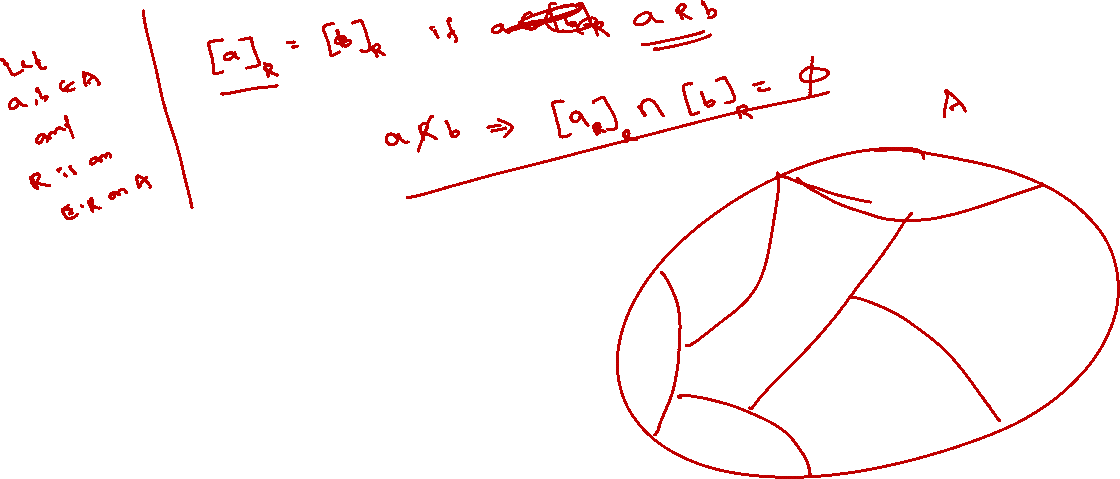 Let
a,b ∈ A
and
R is an
E.R on A
[a]_R = [b]_R if a R b
a R̸ b ⇒ [a_R]_R ∩ [b]_R = ϕ
A